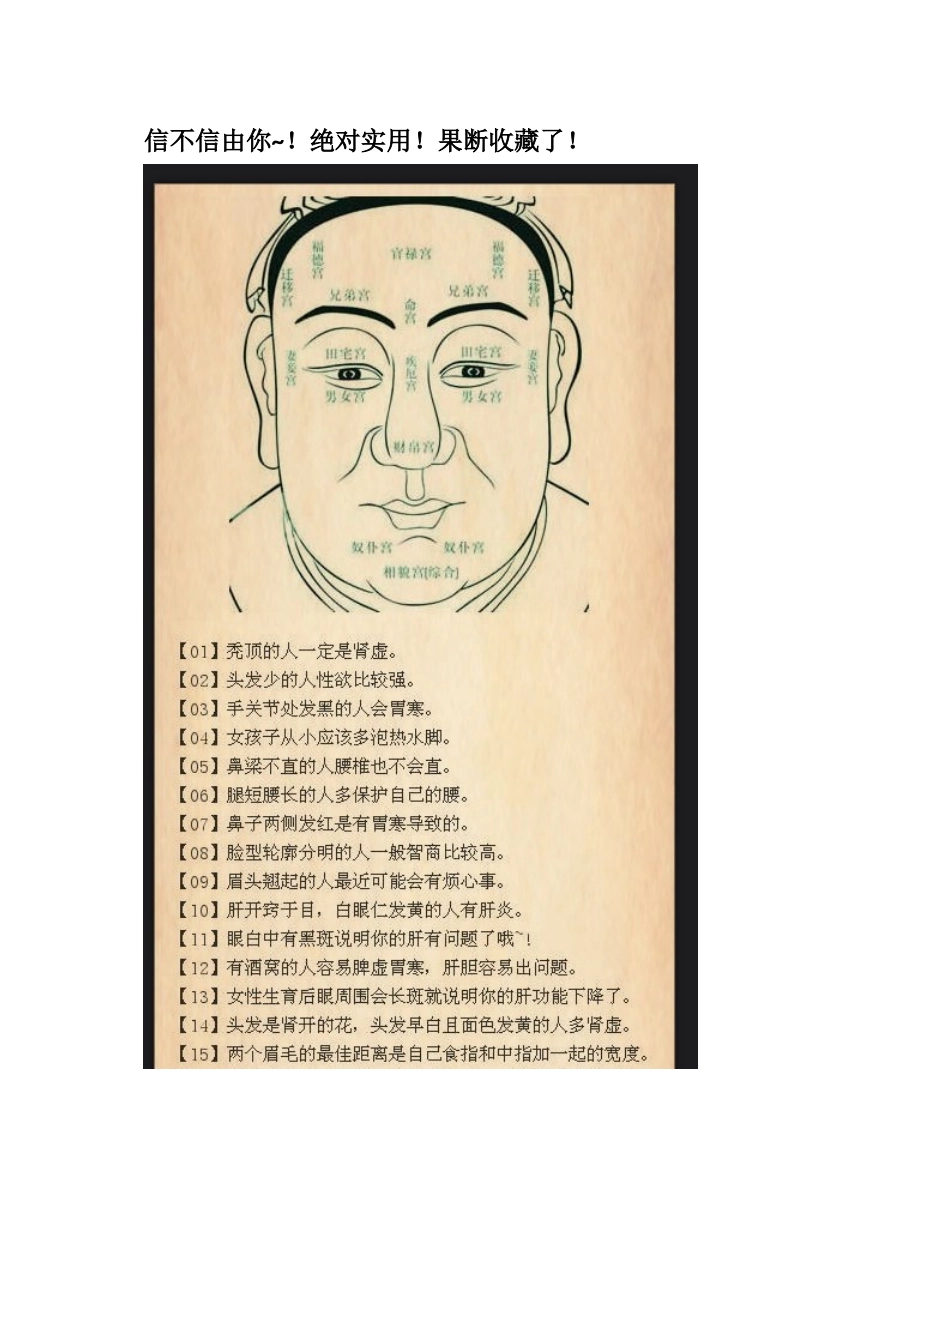 信不信由你~！绝对实用！果断收藏了！
福德宫
官禄宫
福德宫
迁移宫
迁移宫
兄弟宫
兄弟宫
命宫
妻妾宫
田宅宫
疾厄宫
田宅宫
妻妾宫
男女宫
男女宫
财帛宫
奴仆宫
奴仆宫
相貌宫[综合]
【01】秃顶的人一定是肾虚。
【02】头发少的人性欲比较强。
【03】手关节处发黑的人会胃寒。
【04】女孩子从小应该多泡热水脚。
【05】鼻梁不直的人腰椎也不会直。
【06】腿短腰长的人多保护自己的腰。
【07】鼻子两侧发红是有胃寒导致的。
【08】脸型轮廓分明的人一般智商比较高。
【09】眉头翘起的人最近可能会有烦心事。
【10】肝开窍于目，白眼仁发黄的人有肝炎。
【11】眼白中有黑斑说明你的肝有问题了哦~！
【12】有酒窝的人容易脾虚胃寒，肝胆容易出问题。
【13】女性生育后眼周围会长斑就说明你的肝功能下降了。
【14】头发是肾开的花，头发早白且面色发黄的人多肾虚。
【15】两个眉毛的最佳距离是自己食指和中指加一起的宽度。